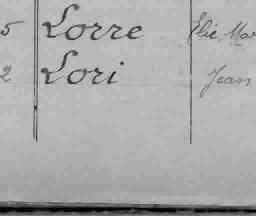 5 Lorre Élie Mar
2 Lori Jean